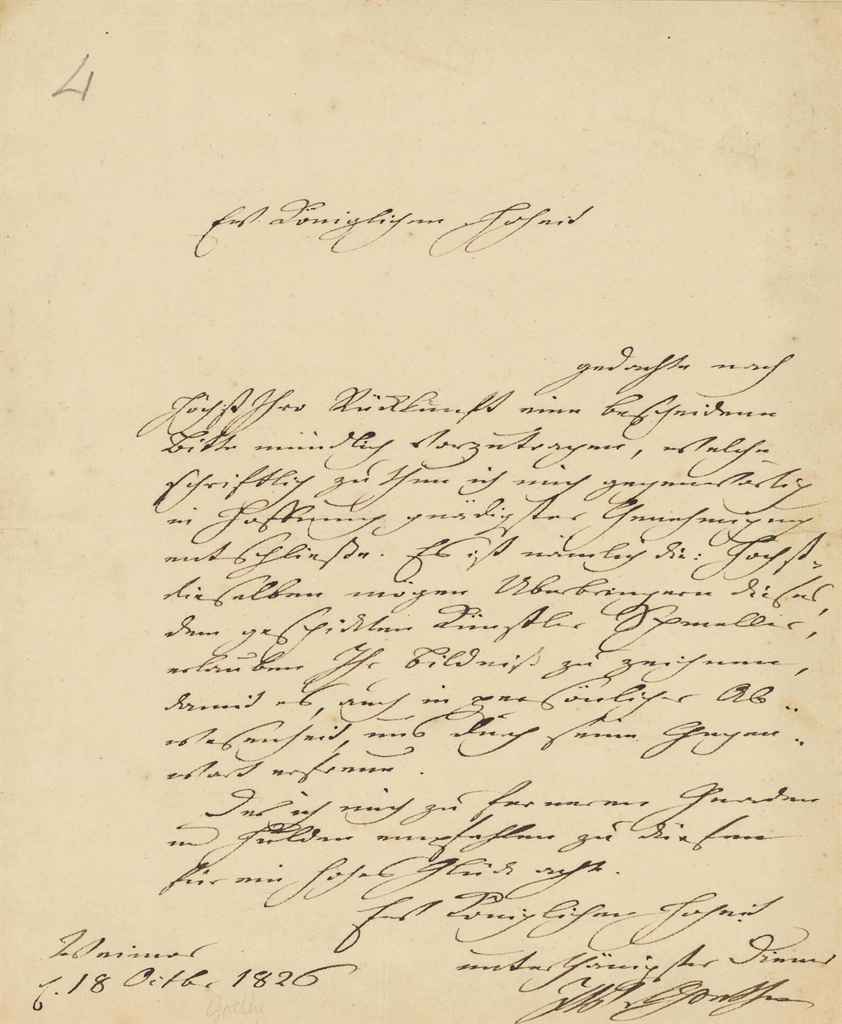 4
Ew. Königlichen Hoheit
gedachte nach
Höchst Ihro Rückkunft eine bescheidene
Bitte mündlich vorzutragen, welche
schriftlich zu thun ich mich gegenwärtig
in Hoffnung gnädigster Genehmigung
entschließe. Es ist nämlich die: Höchst-
dieselben mögen Überbringern dieses,
dem geschickten Künstler Schmeller,
erlauben Ihr Bildniß zu zeichnen,
damit es, auch in persönlicher Ab-
wesenheit, uns durch seine Gegen-
wart erfreue.
Der ich mich zu ferneren Gnaden
und Hulden empfehlen zu dürfen
für ein hohes Glück achte.
Ew Königlichen Hoheit
Weimar
unterthänigster Diener
d. 18 Octbr 1826
JW v Goethe
Goethe